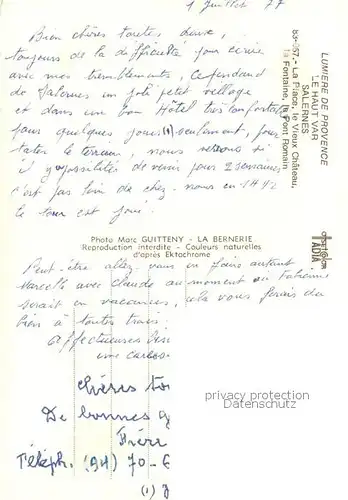 1 Juillet 77
Bien chères toutes, deux,
toujours de la difficulté pour écrire
avec mes tremblements, cependant
de Salernes un joli petit village
et dans un bon Hôtel très confortable
pour quelques jours (1) seulement, pour
tater le terrain, nous verrons si
il y a possibilités de venir pour 2 semaines
c'est pas loin de chez-nous en 1H 1/2
le tour est joué.
LUMIERE DE PROVENCE
LE HAUT VAR
SALERNES
83-357. - La Place, le Vieux Château,
la Fontaine, le Pont Romain
Photo Marc GUITTENY - LA BERNERIE
Reproduction interdite - Couleurs naturelles
d'après Ektachrome
Peut-être allez vous en faire autant
Marcelle avec Claude au moment où
serait en vacances, cela vous ferais du
bien à toutes trois.
Affectueuses
une
chères
De bonnes
Téléph. (94) 70-
(1)
privacy protection
Datenschutz